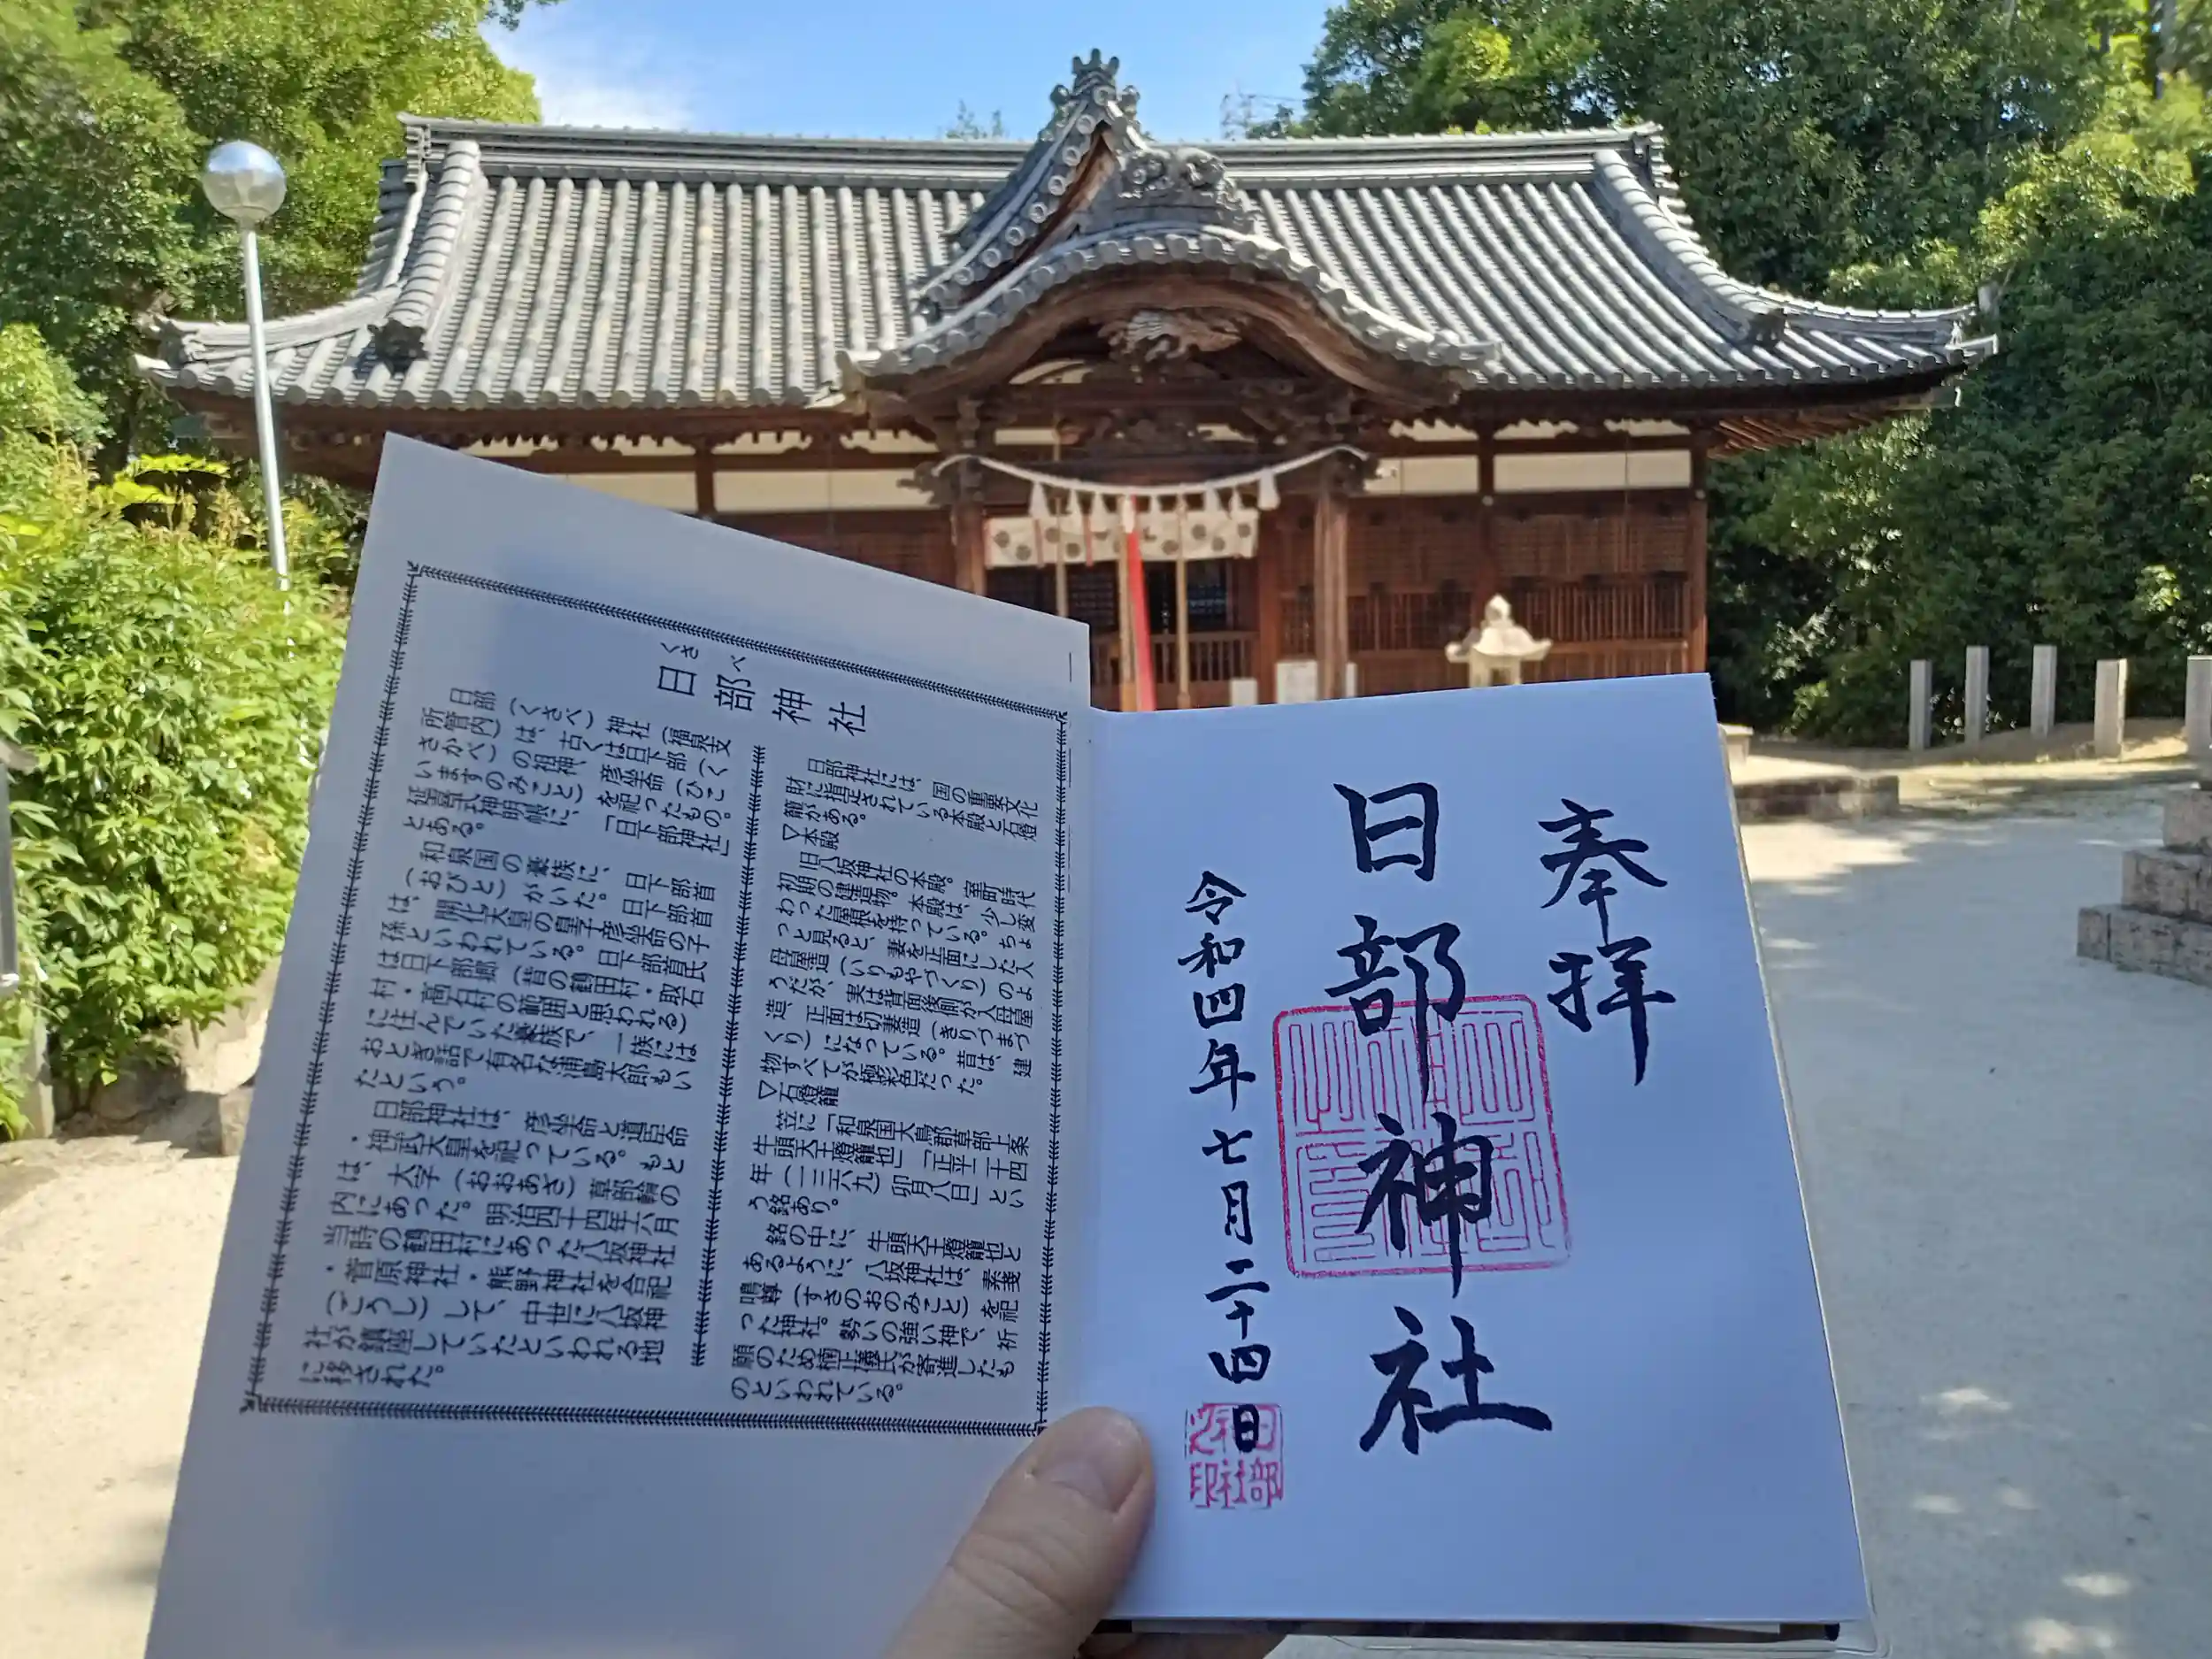 奉拝
日部神社
令和四年七月二十四日
日部
神社
之印
くさべ
日部神社
日部（くさべ）神社（福泉支
所管内）は、古くは日下部（く
さかべ）の祖神、彦坐命（ひこ
いますのみこと）を祀ったもの。
延喜式神明帳に、「日下部神社」
とある。
和泉国の豪族に、日下部首
（おびと）がいた。日下部首
は、開化天皇の皇子彦坐命の子
孫といわれている。日下部首氏
は日下部郷（昔の鶴田村・取石
村・高石村の範囲と思われる）
に住んでいた豪族で、一族には
おとぎ話で有名な浦島太郎もい
たという。
日部神社は、彦坐命と道臣命
・神武天皇を祀っている。もと
は、大字（おおあざ）草部輪の
内にあった。明治四十四年六月
当時の鶴田村にあった八坂神社
・菅原神社・熊野神社を合祀
（ごうし）して、中世に八坂神
社が鎮座していたといわれる地
に移された。
日部神社には、国の重要文化
財に指定されている本殿と石燈
籠がある。
▽本殿
旧八坂神社の本殿。室町時代
初期の建造物。本殿は、少し変
わった屋根を持っている。ちょ
っと見ると、妻を正面にした入
母屋造（いりもやづくり）のよ
うだが、実は背面後側が入母屋
造、正面は切妻造（きりづまづ
くり）になっている。昔は、建
物すべてが極彩色だった。
▽石燈籠
笠に「和泉国大鳥郡草部上条
牛頭天王燈籠也」「正平二十四
年（一三六九）卯月八日」とい
う銘あり。
銘の中に、牛頭天王燈籠也と
あるように、八坂神社は、素戔
鳴尊（すさのおのみこと）を祀
った神社。勢いの強い神で、祈
願のため楠正儀氏が寄進したも
のといわれている。